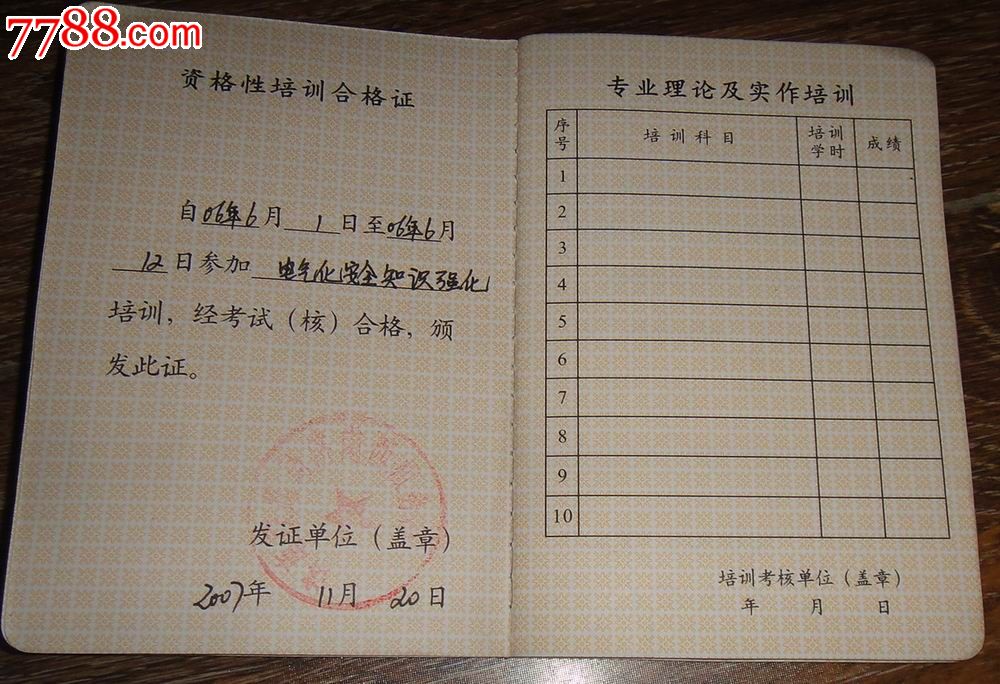 7788.com
资格性培训合格证
自06年6月1日至06年6月
12日参加电气化安全知识强化
培训，经考试（核）合格，颁
发此证。
发证单位（盖章）
2007年 11月 20日
专业理论及实作培训
序号 培训科目 培训学时 成绩
1
2
3
4
5
6
7
8
9
10
培训考核单位（盖章）
年 月 日